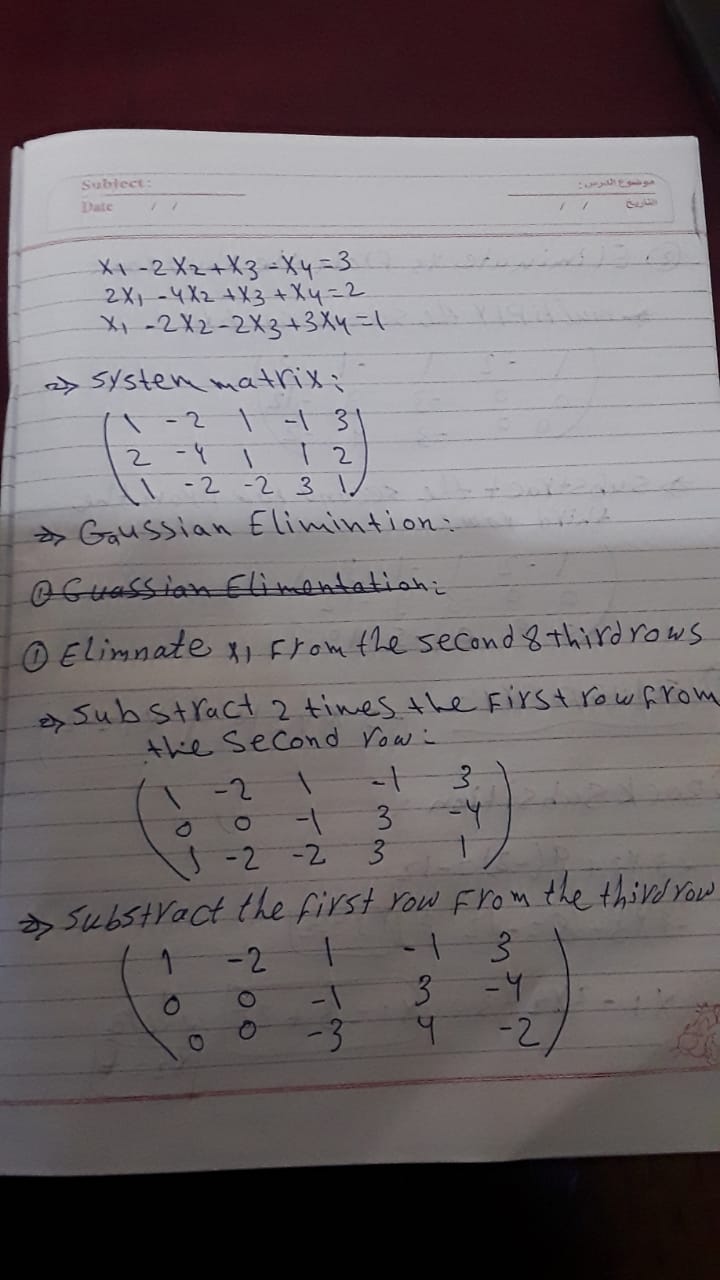 Subject:
موضوع الدرس:
Date / /
/ / التاريخ
x1-2x2+x3-x4=3
2x1-4x2+x3+x4=2
x1-2x2-2x3+3x4=1
⇒ system matrix:
1 -2 1 -1 3
2 -4 1 1 2
1 -2 -2 3 1
⇒ Gaussian Elimintion:
① Guassian Elimentation:
① Elimnate x1 From the second & third rows
⇒ Substract 2 times the First row from
the Second row:
1 -2 1 -1 3
0 0 -1 3 -4
1 -2 -2 3 1
⇒ Substract the first row From the third row
1 -2 1 -1 3
0 0 -1 3 -4
0 0 -3 4 -2